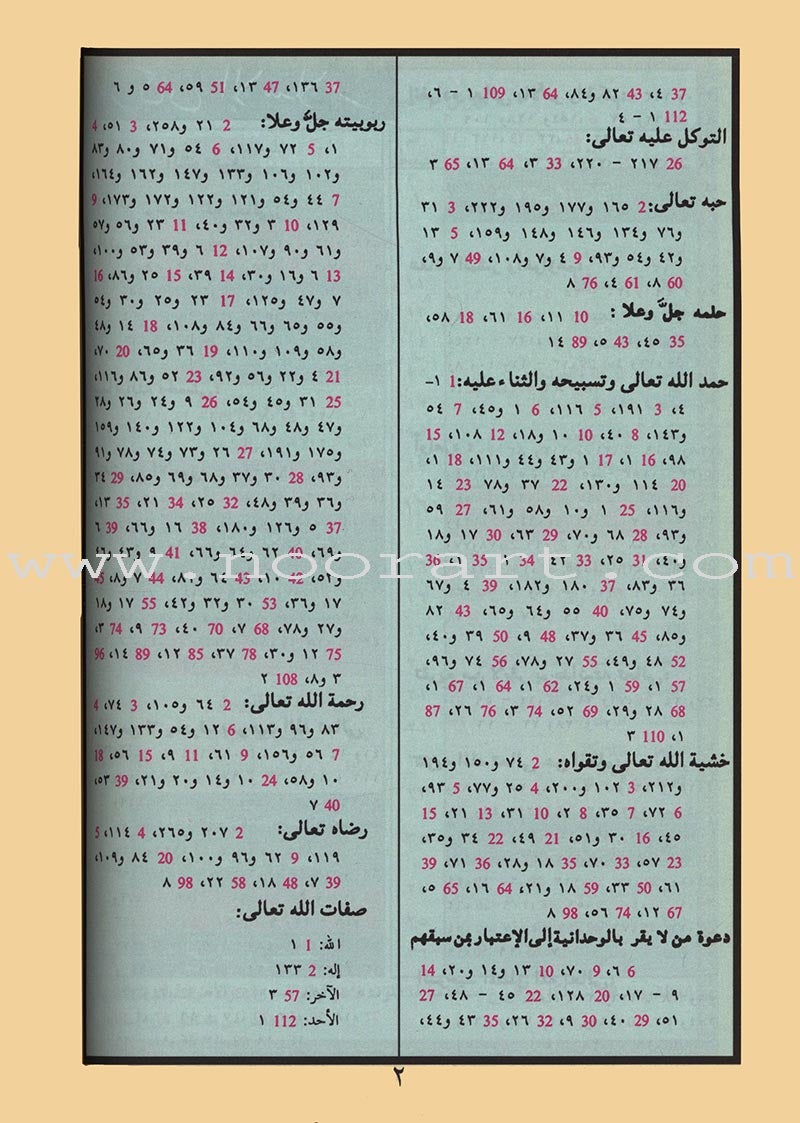 37 ٤، 43 ٨٢ و٨٤، 64 ١٣، 109 ١ - ٦،
112 ١ - ٤
التوكل عليه تعالى:
26 ٢١٧ - ٢٢٠، 33 ٣، 64 ١٣، 65 ٣
حبه تعالى: 2 ١٦٥ و١٧٧ و١٩٥ و٢٢٢، 3 ٣١
و٧٦ و١٣٤ و١٤٦ و١٤٨ و١٥٩، 5 ١٣
و٤٢ و٥٤ و٩٣، 9 ٤ و٧ و١٠٨، 49 ٧ و٩،
60 ٨، 61 ٤، 76 ٨
حلمه جلَّ وعلا: 10 ١١، 16 ٦١، 18 ٥٨،
35 ٤٥، 43 ٥، 89 ١٤
حمد الله تعالى وتسبيحه والثناء عليه: 1 ١-
٤، 3 ١٩١، 5 ١١٦، 6 ١ و٤٥، 7 ٥٤
و١٤٣، 8 ٤٠، 10 ١٠ و١٨، 12 ١٠٨، 15
٩٨، 16 ١، 17 ١ و٤٣ و٤٤ و١١١، 18 ١،
20 ١١٤ و١٣٠، 22 ٣٧ و٧٨ 23 ١٤
و١١٦، 25 ١ و١٠ و٥٨ و٦١، 27 ٥٩
و٩٣، 28 ٦٨ و٧٠، 29 ٦٣، 30 ١٧ و١٨
و٤٠، 31 ٢٥، 33 ٤٢ 34 ١، 35 ١، 36
٣٦ و٨٣، 37 ١٨٠ و١٨٢، 39 ٤ و٦٧
و٧٤ و٧٥، 40 ٥٥ و٦٤ و٦٥، 43 ٨٢
و٨٥، 45 ٣٦ و٣٧، 48 ٩، 50 ٣٩ و٤٠،
52 ٤٨ و٤٩، 55 ٢٧ و٧٨، 56 ٧٤ و٩٦،
57 ١، 59 ١ و٢٤، 62 ١، 64 ١، 67 ١،
68 ٢٨ و٢٩، 69 ٥٢، 74 ٣، 76 ٢٦، 87
١، 110 ٣
خشية الله تعالى وتقواه: 2 ٧٤ و١٥٠ و١٩٤
و٢١٢، 3 ١٠٢ و٢٠٠، 4 ٢٥ و٧٧، 5 ٩٣،
6 ٧٢، 7 ٣٥، 8 ٢، 10 ٣١، 13 ٢١، 15
٤٥، 16 ٣٠ و٥١، 21 ٤٩، 22 ٣٤ و٣٥،
23 ٥٧، 33 ٧٠، 35 ١٨ و٢٨، 36 ٧١، 39
٦١، 50 ٣٣، 59 ١٨ و٢١، 64 ١٦، 65 ٥،
67 ١٢، 74 ٥٦، 98 ٨
دعوة من لا يقر بالوحدانية إلى الإعتبار بمن سبقهم
6 ٦، 9 ٧٠، 10 ١٣ و١٤ و٢٠، 14
٩ - ١٧، 20 ١٢٨، 22 ٤٥ - ٤٨، 27
٥١، 29 ٤٠، 30 ٩، 32 ٢٦، 35 ٤٣ و٤٤،
37 ١٣٦، 47 ١٣، 51 ٥٩، 64 ٥ و ٦
ربوبيته جلَّ وعلا: 2 ٢١ و٢٥٨، 3 ٥١، 4
١، 5 ٧٢ و١١٧، 6 ٥٤ و٧١ و٨٠ و٨٣
و١٠٢ و١٠٦ و١٣٣ و١٤٧ و١٦٢ و١٦٤،
7 ٤٤ و٥٤ و١٢١ و١٢٢ و١٧٢ و١٧٣، 9
١٢٩، 10 ٣ و٣٢ و٤٠، 11 ٢٣ و٥٦ و٥٧
و٦١ و٩٠ و١٠٧، 12 ٦ و٣٩ و٥٣ و١٠٠،
13 ٦ و١٦ و٣٠، 14 ٣٩، 15 ٢٥ و٨٦، 16
٧ و٤٧ و١٢٥، 17 ٢٣ و٢٥ و٣٠ و٥٤
و٥٥ و٦٥ و٦٦ و٨٤ و١٠٨، 18 ١٤ و٤٨
و٥٨ و١٠٩ و١١٠، 19 ٣٦ و٦٥، 20 ٧٠،
21 ٤ و٢٢ و٥٦ و٩٢، 23 ٥٢ و٨٦ و١١٦،
25 ٣١ و٤٥ و٥٤، 26 ٩ و٢٤ و٢٦ و٢٨
و٤٧ و٤٨ و٦٨ و١٠٤ و١٢٢ و١٤٠ و١٥٩
و١٧٥ و١٩١، 27 ٢٦ و٧٣ و٧٤ و٧٨ و٩١
و٩٣، 28 ٣٠ و٣٧ و٦٨ و٦٩ و٨٥، 29 ٣٤
و٣٦ و٣٩ و٤٨، 32 ٢٥، 34 ٢١، 35 ١٣،
37 ٥ و١٢٦ و١٨٠، 38 ١٦ و٦٦، 39 ٦
و٦٩، 40 ٦٢ و٦٤ و٦٦، 41 ٩ و٤٣ و
و٥٢، 42 ١٠، 43 ٦٤ و٨٠، 44 ٧ و٨،
١٧ و٣٦، 53 ٣٠ و٣٢ و٤٢، 55 ١٧ و١٨
و٢٧ و٧٨، 68 ٧، 70 ٤٠، 73 ٩، 74 ٣،
75 ١٢ و٣٠، 78 ٣٧، 85 ١٢، 89 ١٤، 96
٣ و٨، 108 ٢
رحمة الله تعالى: 2 ٦٤ و١٠٥، 3 ٧٤، 4
٨٣ و٩٦ و١١٣، 6 ١٢ و٥٤ و١٣٣ و١٤٧،
7 ٥٦ و١٥٦، 9 ٦١، 11 ٩، 15 ٥٦، 18
١٠ و٥٨، 24 ١٠ و١٤ و٢٠ و٢١، 39 ٥٣،
40 ٧
رضاه تعالى: 2 ٢٠٧ و٢٦٥، 4 ١١٤، 5
١١٩، 9 ٦٢ و٩٦ و١٠٠، 20 ٨٤ و١٠٩،
39 ٧، 48 ١٨، 58 ٢٢، 98 ٨
صفات الله تعالى:
الله: 1 ١
إله: 2 ١٣٣
الآخر: 57 ٣
الأحد: 112 ١
٢
www.noorart.com